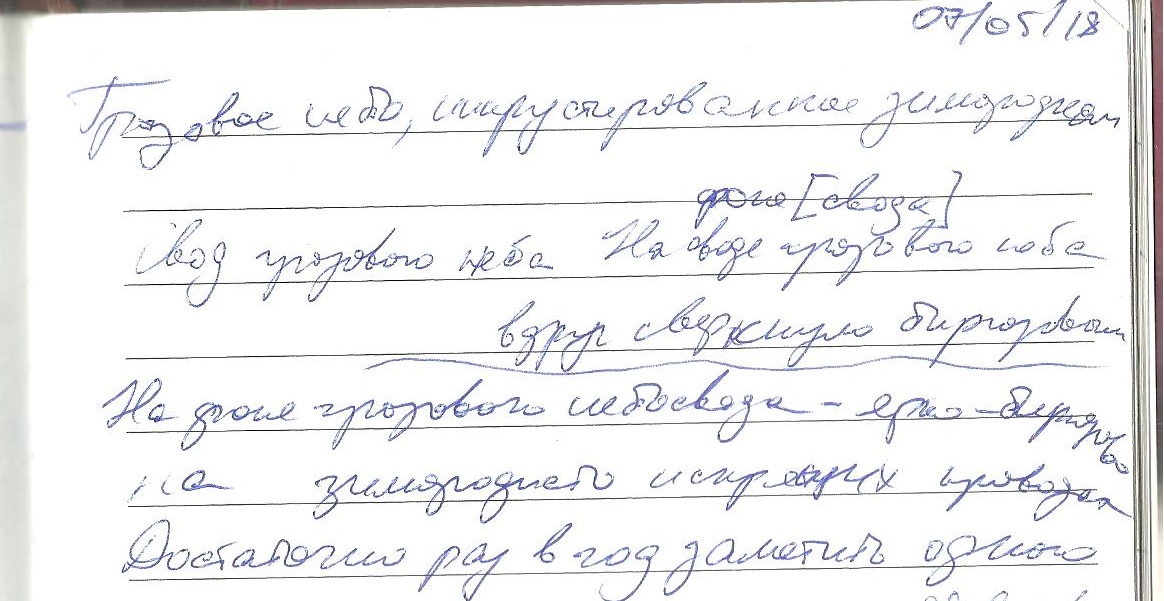 07/05/18
Грозовое небо, инкрустированное зимородком
фоне [свода]
Свод грозового неба На своде грозового неба
вдруг сверкнуло бирюзовым
На фоне грозового небосвода – ярко-бирюзово
на зимородисто искрящих проводах
Достаточно раз в год заметить одного